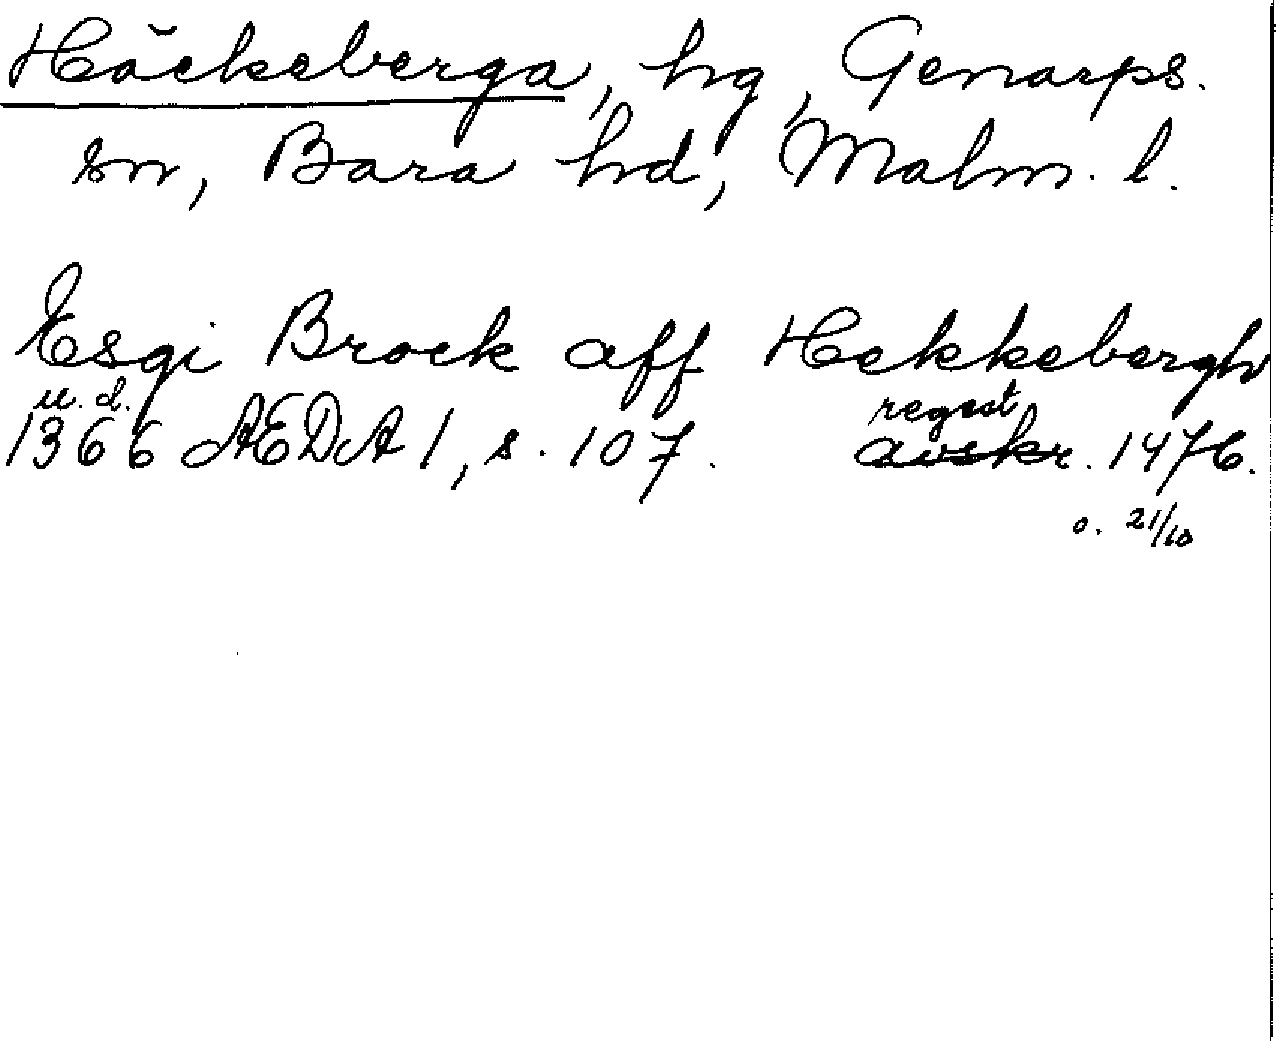 Häckeberga, hg, Genarps.
sn, Bara hd, Malm. l.
Esgi Brock aff Hekkebergh
u. d.
1366 ÆDA 1, s. 107. regest avskr. 1476.
o. 21/10